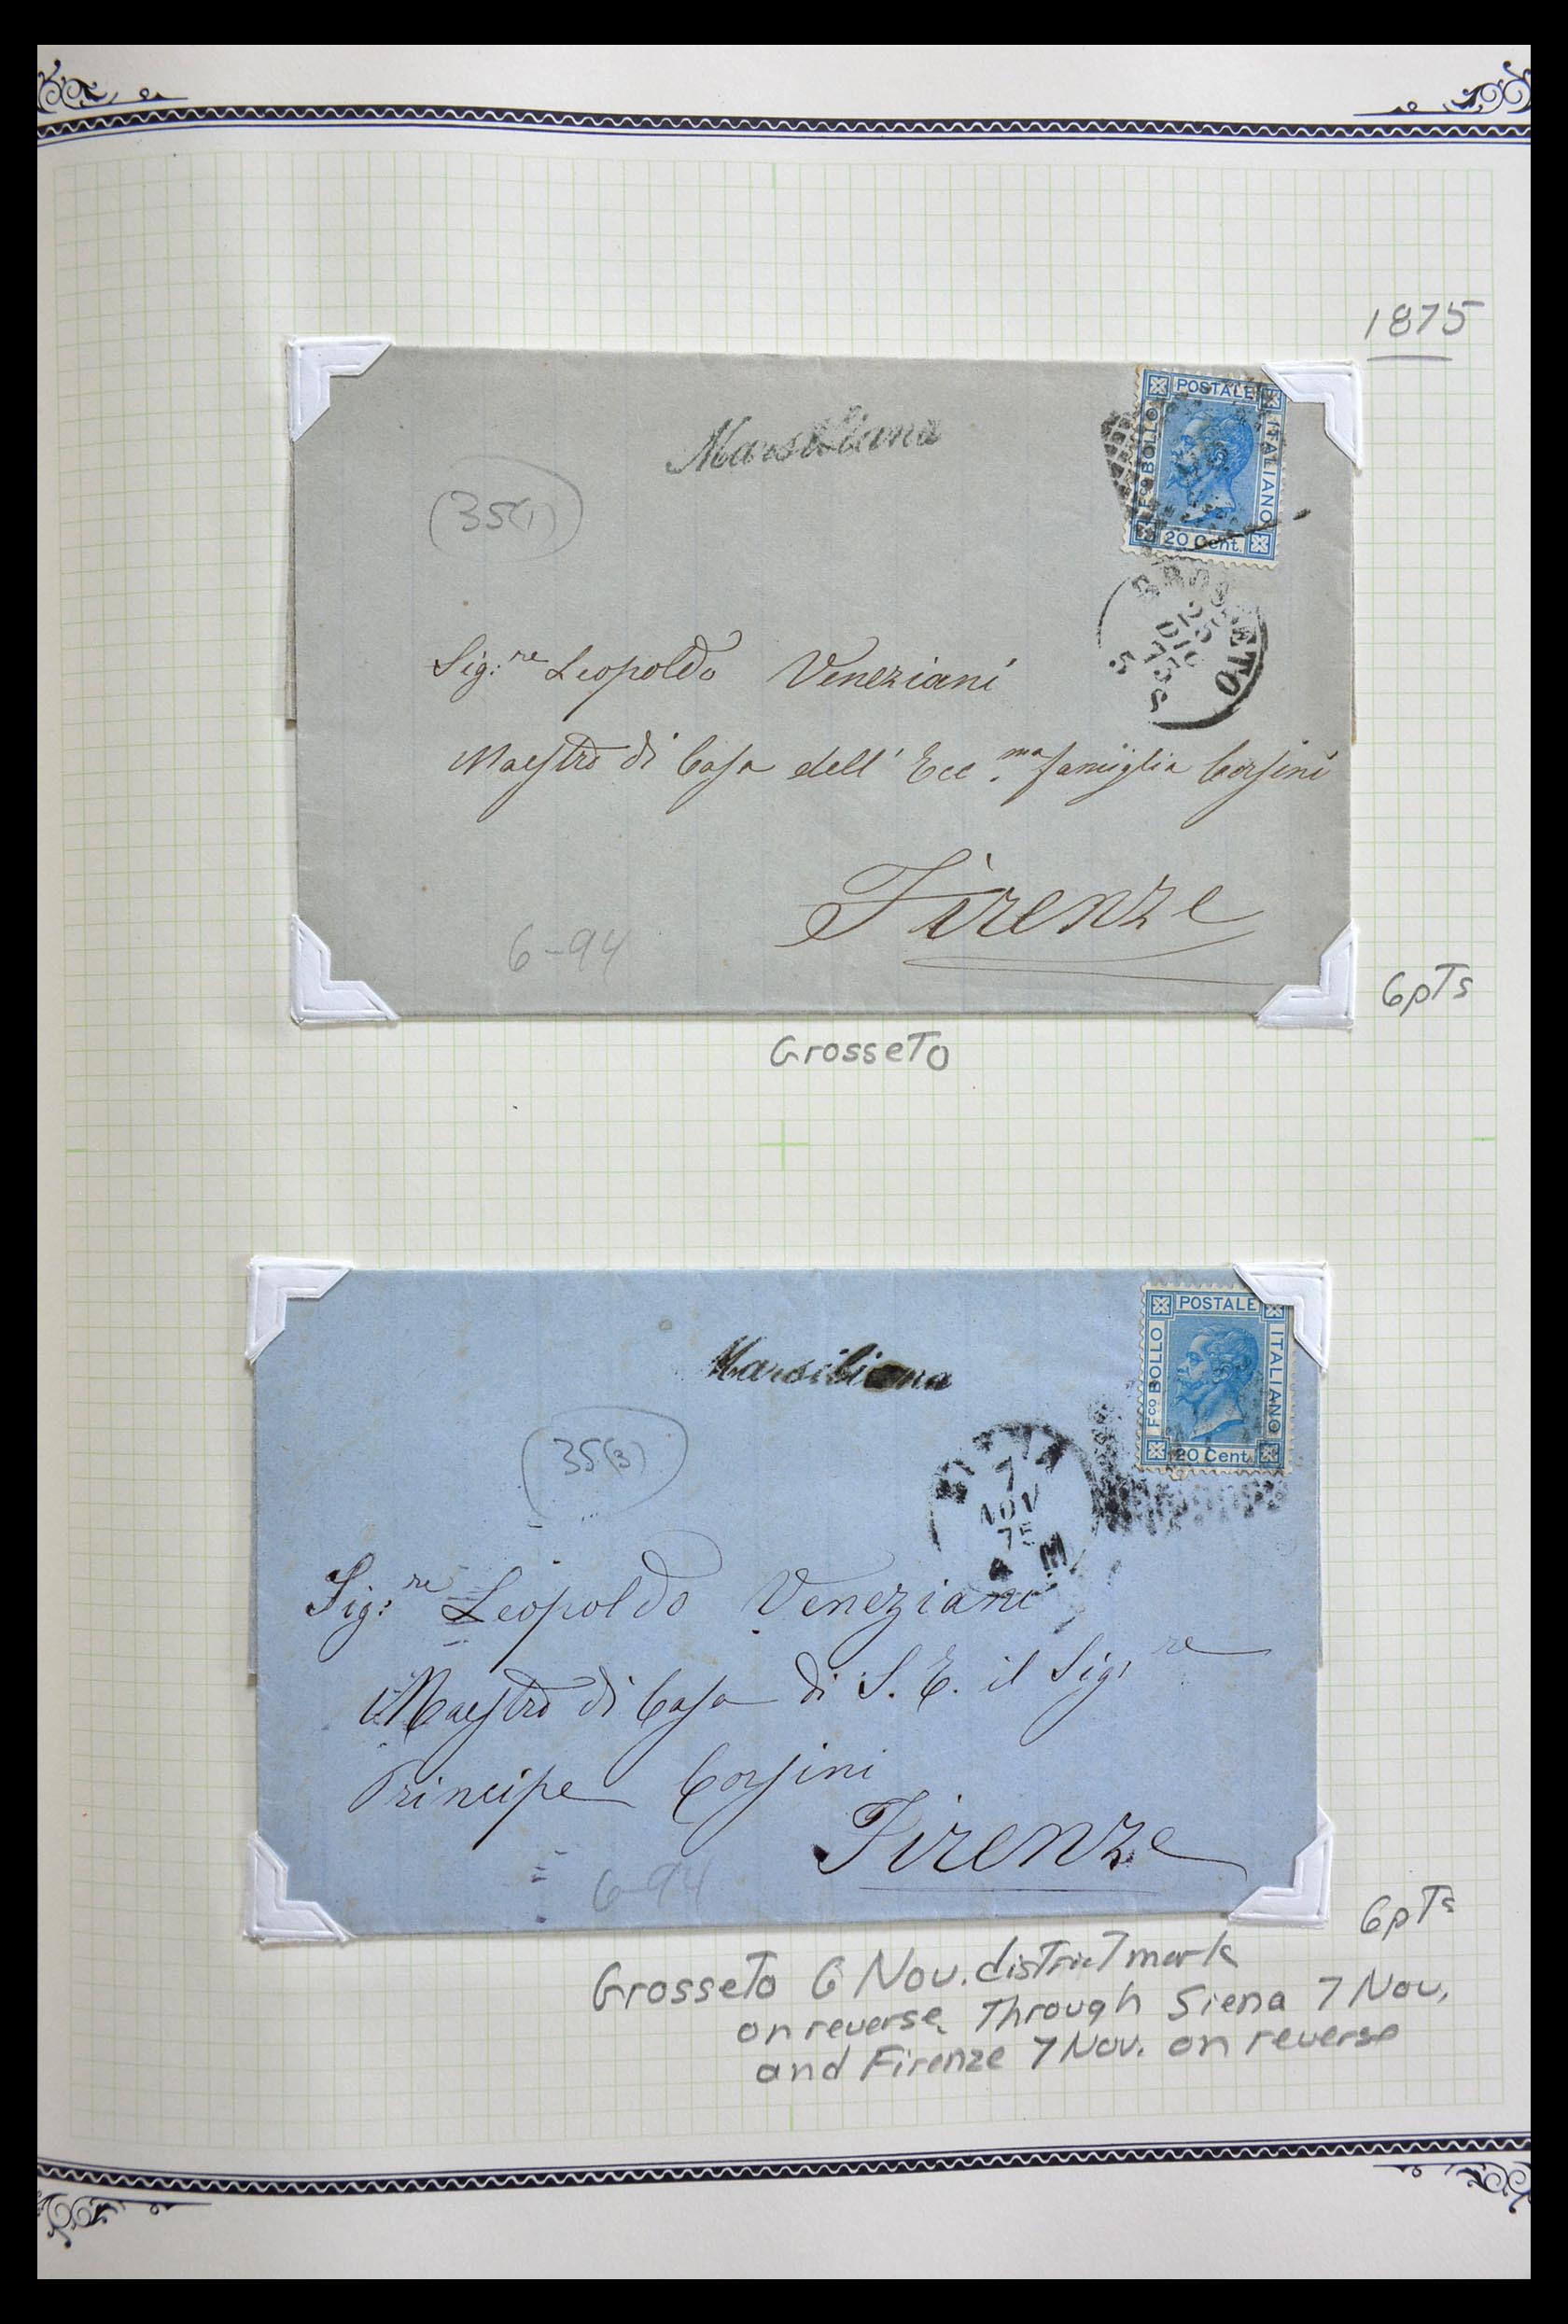 1875
Marsiliana
35(1)
POSTALE
Fco BOLLO
ITALIANO
20 Cent.
GROSSETO
DIC
75
5 S
Sig:re Leopoldo Veneziani
Maestro di Casa dell' Ecc.ma famiglia Corsini
Firenze
6-94
6pTs
GrosseTo
Marsiliana
35(3)
POSTALE
Fco BOLLO
ITALIANO
20 Cent.
7
NOV
75
M
Sig:re Leopoldo Veneziani
Maestro di Casa di S. E. il Sigre
Principe Corsini
Firenze
6-94
6pTs
GrosseTo 6 Nov. disTricT mark
on reverse. Through Siena 7 Nov.
and Firenze 7 Nov. on reverse